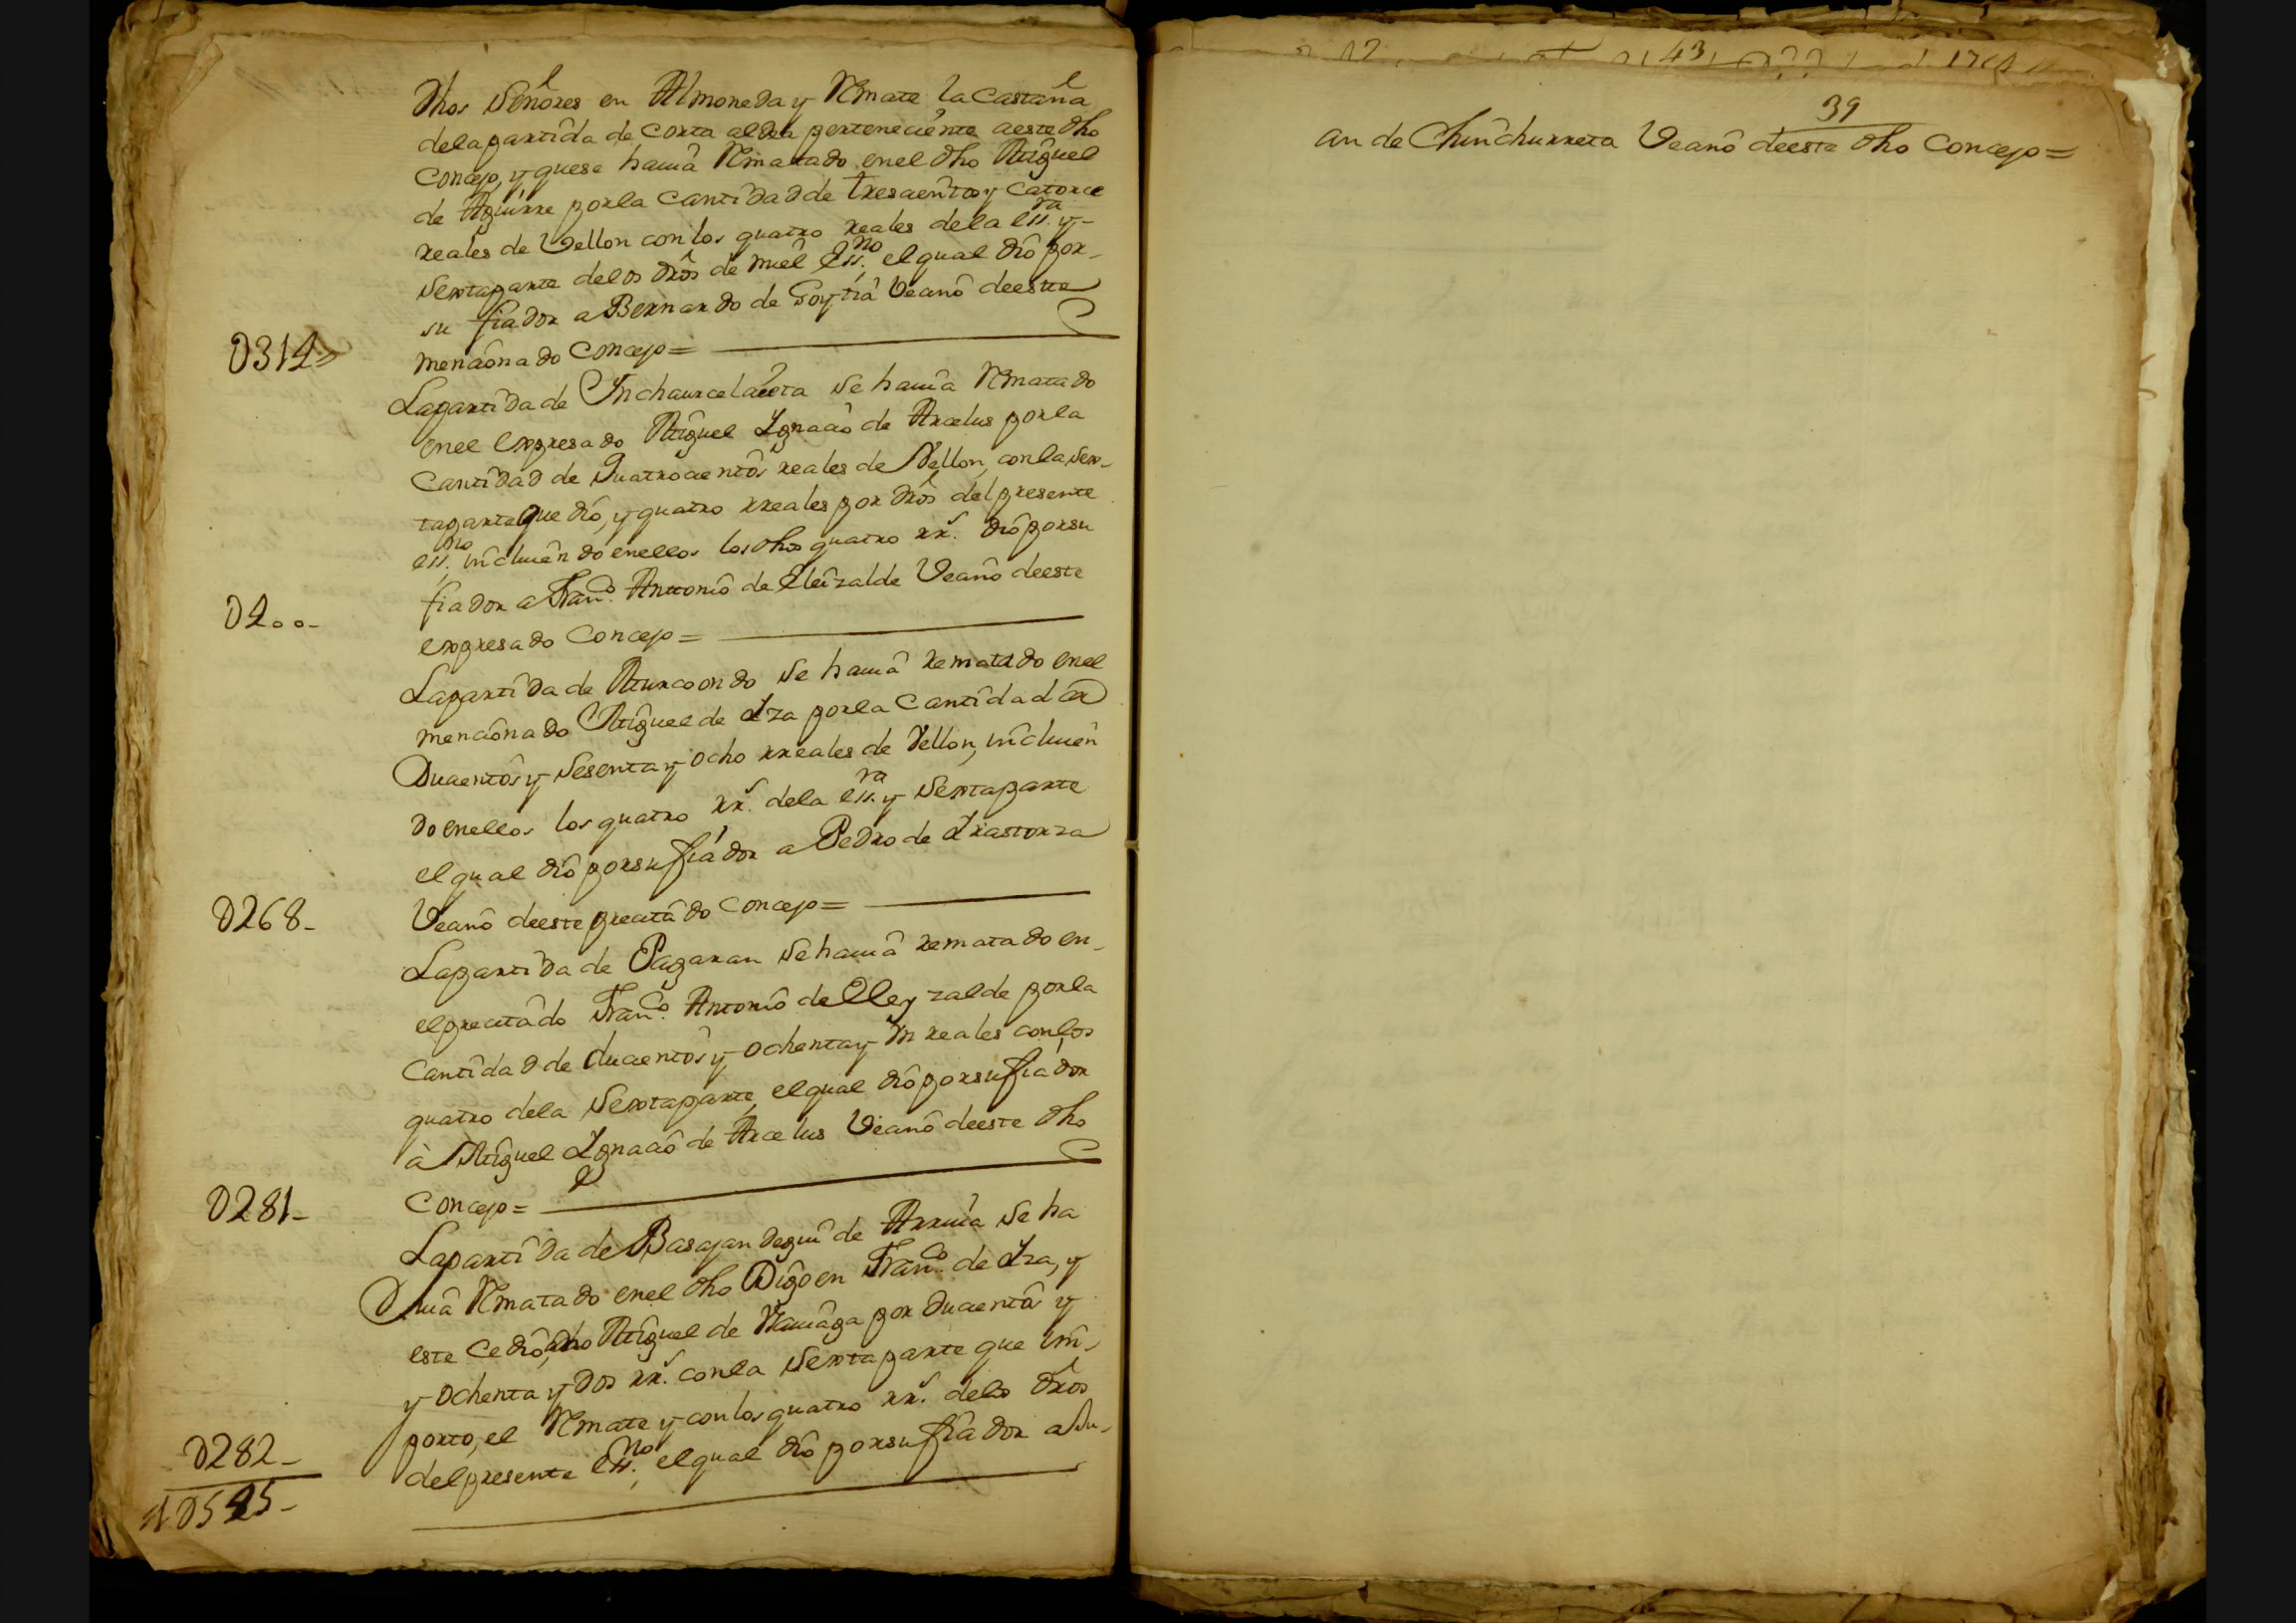 Dhos Señores en Almoneda y Rmate la Castaña
dela partida de Corta aldea perteneciente a este dho
Concejo, y que se hauia Rmatado en el dho Miguel
de Aguirre por la Cantidad de trescientos y Catorce
reales de Vellon con los quatro reales dela ess.ra y
Sextaparte delos dros de mi el ess.no el qual dio por
su fiador a Bernardo de Goytia Vecino de este
0314 mencionado Concejo =
La partida de Inchaurcelaeta se hauia Rmatado
en el expresado Miguel Ignacio de Arcelus por la
Cantidad de Quatrocientos reales de Vellon, con la Sex-
taparte que dio, y quatro rreales por dros del presente
ess.no incluiendo en ellos los dhos quatro rr.s dio por su
fiador a Fran.co Anttonio de Eleizalde Vecino de este
0400- expresado Concejo =
La partida de Murcoondo se hauia rematado en el
mencionado Miguel de Iza por la Cantidad de
Ducientos y Sesenta y ocho rreales de Vellon, incluien
do en ellos los quatro rr.s dela ess.ra y Sextaparte
el qual dio por su fiador a Pedro de Irastorza
0268- Vecino de este precitado Concejo =
La partida de Pagaran se hauia rematado en-
el precitado Fran.co Antonio de Elleyzalde por la
Cantidad de ducientos y ochenta y Un reales con los
quatro dela Sextaparte, el qual dio por su fiador
à Miguel Ignacio de Arcelus Vecino de este dho
0281- Concejo =
La partida de Basajandegui de Arruia se ha
uia Rmatado en el dho Digo en Fran.co de Iza, y
este Cedio, dho Miguel de por Ducientos y
y ochenta y dos rr.s con la Sextaparte que im-
porto, el Rmate y con los quatro rr.s delos dros
0282- del presente ess.no, el qual dio por su fiador a Ju-
10545-
39
an de Chinchurreta Vecino de este dho Concejo =